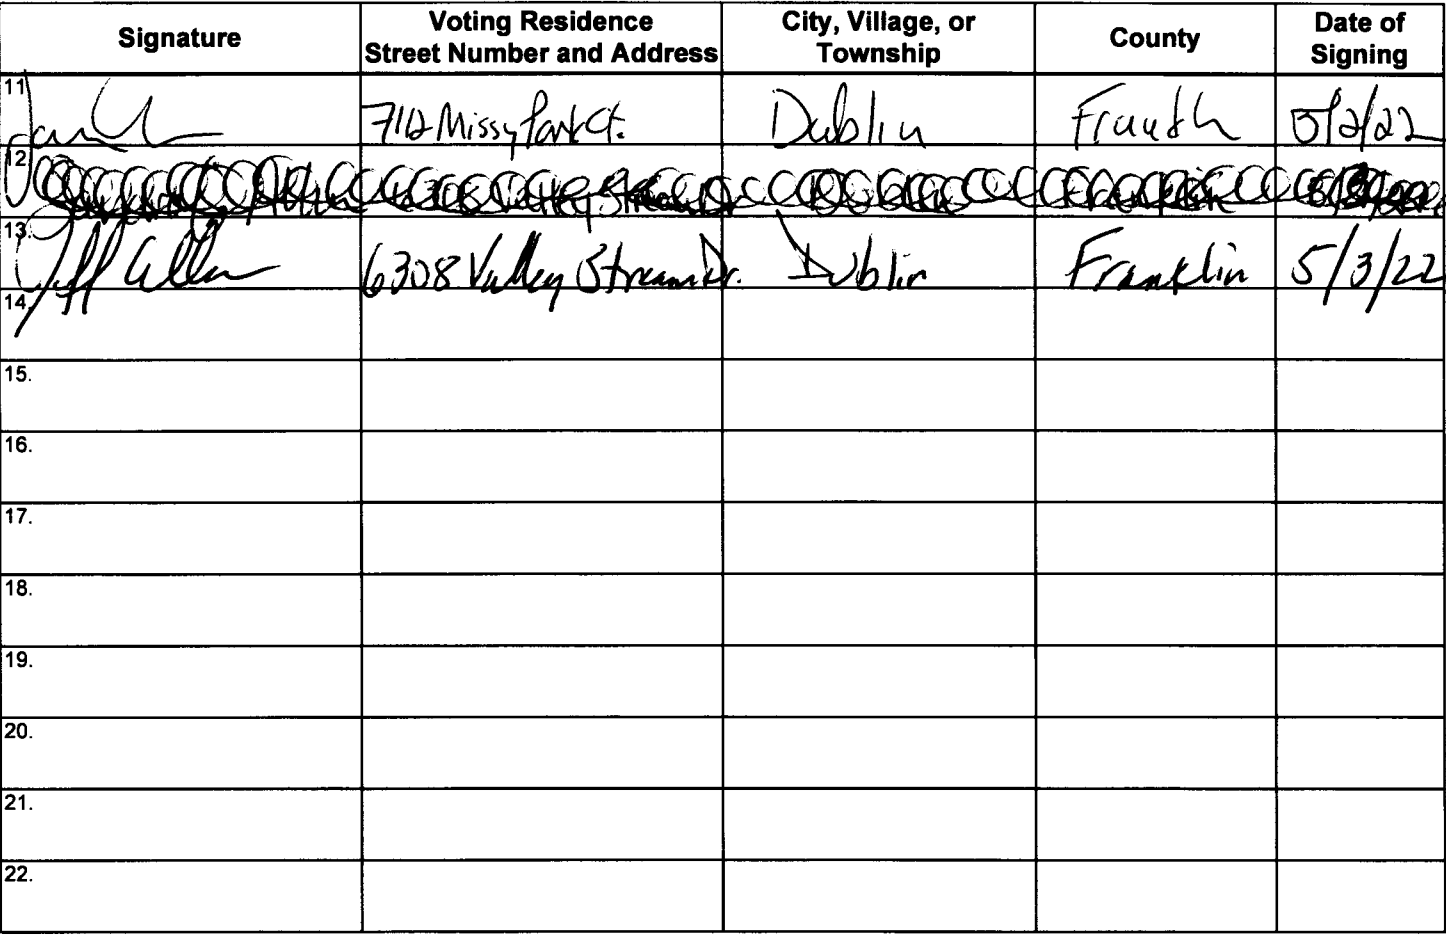 Signature Voting Residence Street Number and Address City, Village, or Township County Date of Signing
11 7112 Missy Park Ct. Dublin Franklin 5/2/22
12
13. Jeff Allen 6308 Valley Stream Dr. Dublin Franklin 5/3/22
14.
15.
16.
17.
18.
19.
20.
21.
22.